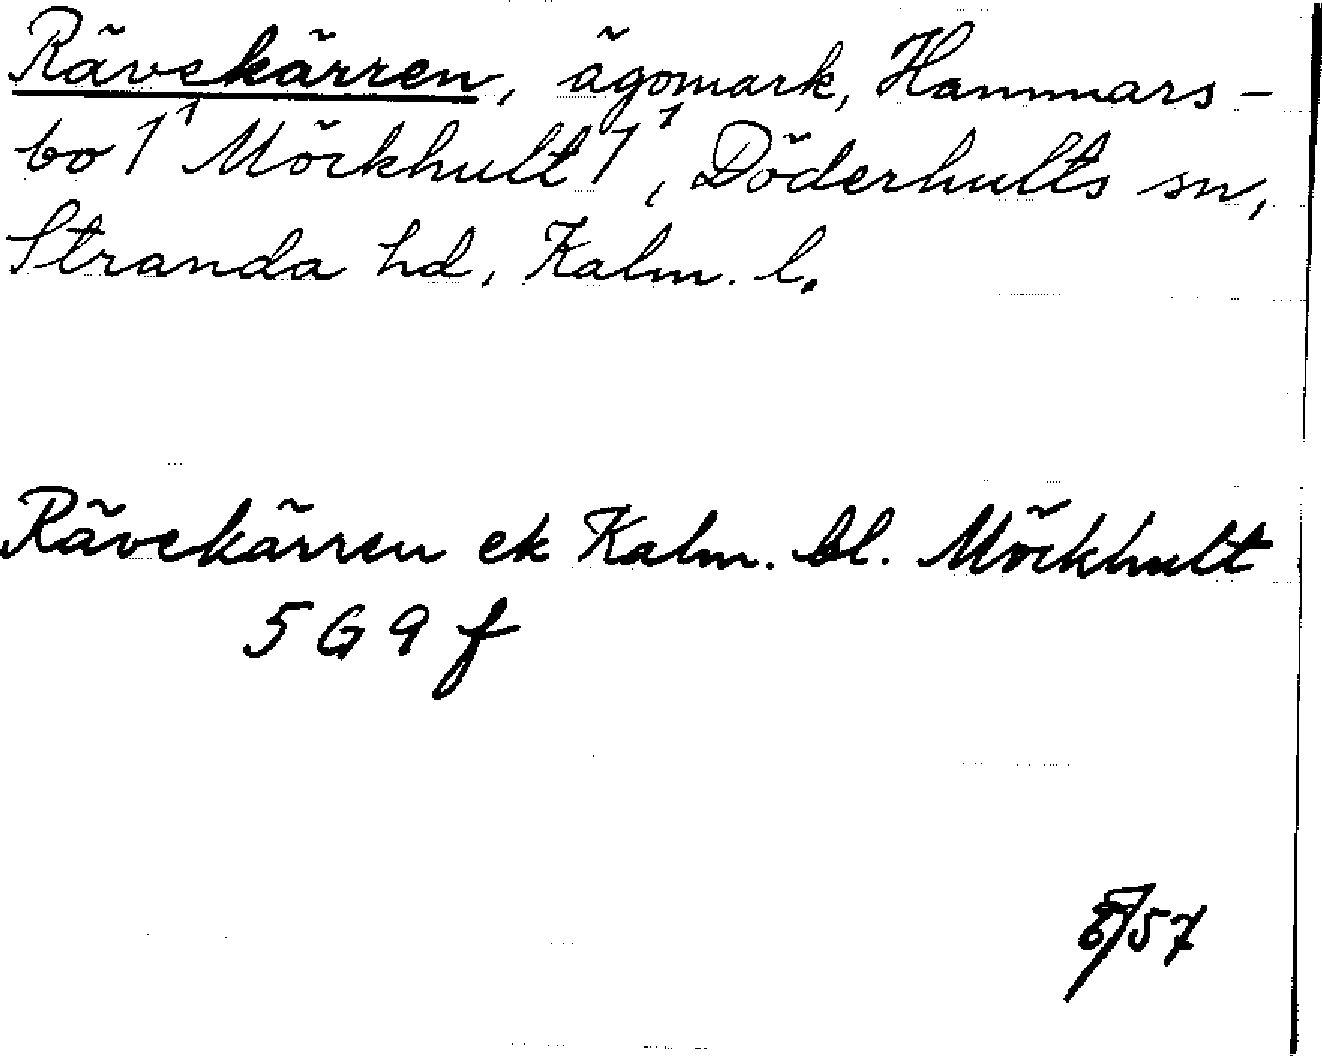 Rävekärren, ägomark, Hammars-
bo 1¹ Möckhult 1¹, Döderhults sn,
Stranda hd, Kalm. l.
Rävekärren ek Kalm. bl. Möckhult
5 G 9 f